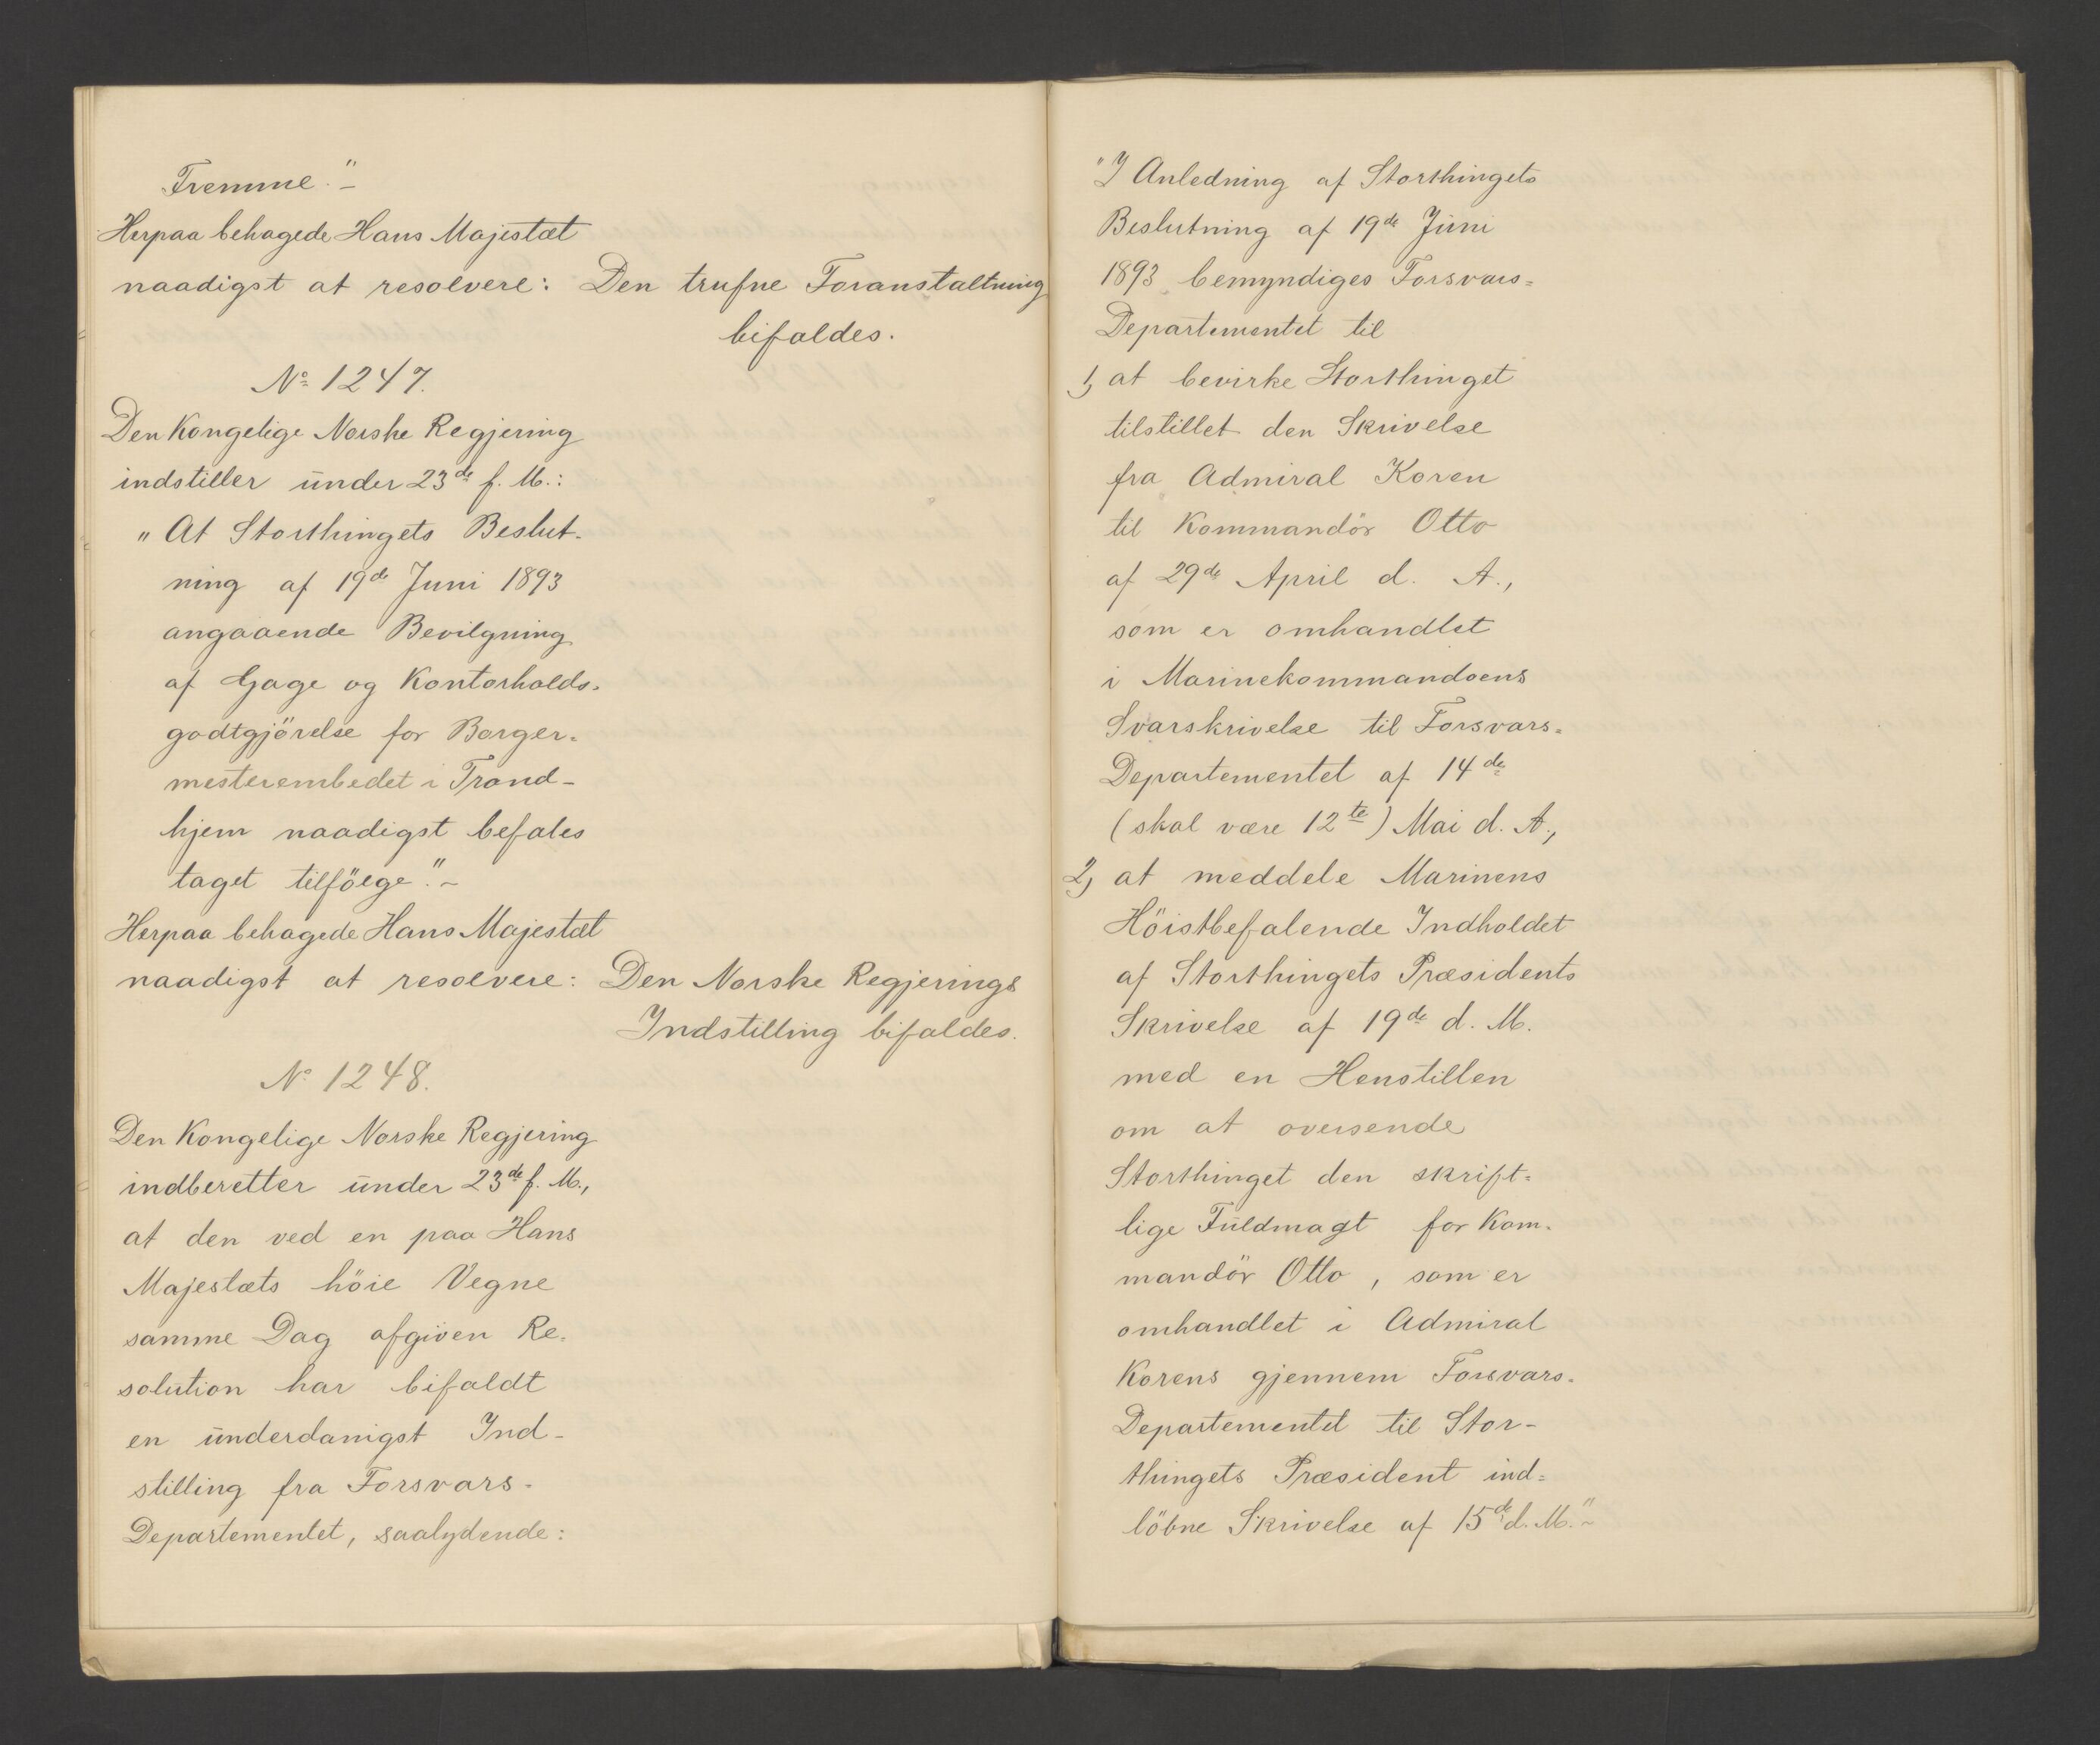 Fremme."-
Herpaa behagede Hans Majestæt
naadigst at resolvere: Den trufne Foranstaltning
bifaldes.
No 1247.
Den Kongelige Norske Regjering
indstiller under 23de f. M.:
"At Storthingets Beslut-
ning af 19de Juni 1893
angaaende Bevilgning
af Gage og Kontorholds-
godtgjörelse for Borger-
mesterembedet i Trond-
hjem naadigst befales
taget tilfölge."-
Herpaa behagede Hans Majestæt
naadigst at resolvere: Den Norske Regjerings
Indstilling bifaldes.
No 1248.
Den Kongelige Norske Regjering
indberetter under 23de f. M.,
at den ved en paa Hans
Majestæts höie Vegne
samme Dag afgiven Re-
solution har bifaldt
en underdanigst Ind-
stilling fra Forsvars-
Departementet, saalydende:
"I Anledning af Storthingets
Beslutning af 19de Juni
1893 bemyndiges Forsvars-
Departementet til
1, at bevirke Storthinget
tilstillet den Skrivelse
fra Admiral Koren
til Kommandör Otto
af 29de April d. A.,
som er omhandlet
i Marinekommandoens
Svarskrivelse til Forsvars-
Departementet af 14de
(skal være 12te) Mai d. A.,
2, at meddele Marinens
Höistbefalende Indholdet
af Storthingets Præsidents
Skrivelse af 19de d. M.
med en Henstillen
om at oversende
Storthinget den skrift-
lige Fuldmagt for Kom-
mandör Otto, som er
omhandlet i Admiral
Korens gjennem Forsvars-
Departementet til Stor-
thingets Præsident ind-
löbne Skrivelse af 15de d. M."-